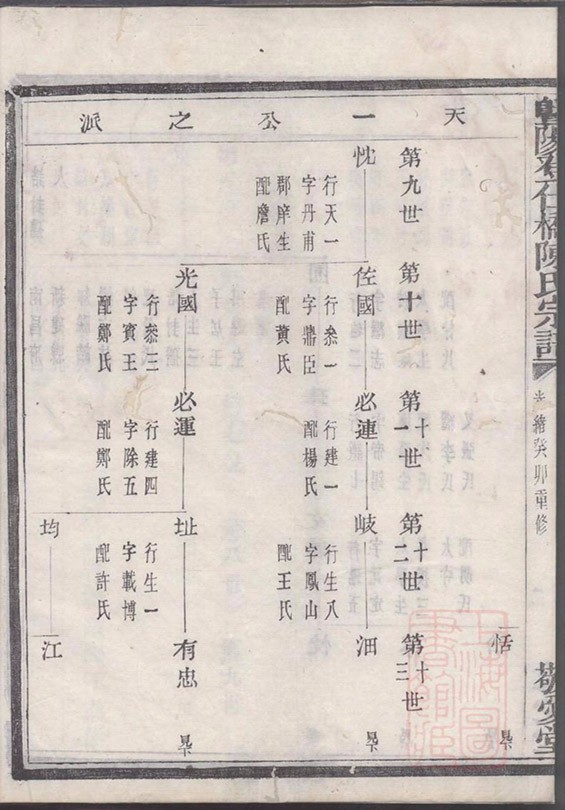 陳氏宗譜
光緒癸卯重修
敬愛堂
天一公之派
第九世
第十世
第十一世
第十二世
第十三世
恬
忱
行天一
字丹甫
郡庠生
配詹氏
佐國
行叅一
字鼎臣
配黃氏
必連
行建一
配楊氏
岐
行生八
字鳳山
配王氏
沺
光國
行叅三
字賓王
配鄭氏
必運
行建四
字除五
配鄭氏
址
行生一
字載博
配許氏
有忠
均
江